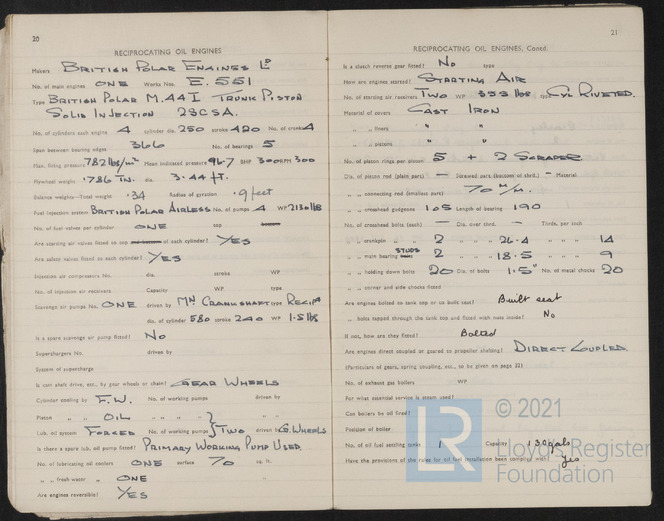 20
RECIPROCATING OIL ENGINES
Makers BRITISH POLAR ENGINES Lᴰ
No. of main engines ONE Works Nos. E. 551
Type BRITISH POLAR M.44I TRUNK PISTON
SOLID INJECTION 2SCSA.
No. of cylinders each engine 4 cylinder dia. 250 stroke 420 No. of cranks 4
Span between bearing edges 366 No. of bearings 5
Max. firing pressure 782 lbs/in² Mean indicated pressure 96.7 BHP 300 RPM 300
Flywheel weight .786 TN. dia. 3.44 FT.
Balance weights—Total weight .34 Radius of gyration .9 feet
Fuel injection system BRITISH POLAR AIRLESS No. of pumps 4 WP 2130 lbs
No. of fuel valves per cylinder ONE top bottom
Are starting air valves fitted to top and bottom of each cylinder? YES
Are safety valves fitted to each cylinder? YES
Injection air compressors No. dia. stroke WP
No. of injection air receivers Capacity WP type
Scavenge air pumps No. ONE driven by MN CRANKSHAFT type RECIPG
dia. of cylinder 580 stroke 240 WP 1.5 lbs
Is a spare scavenge air pump fitted? NO
Superchargers No. driven by
System of supercharge
Is cam shaft drive, etc., by gear wheels or chain? GEAR WHEELS
Cylinder cooling by F.W. No. of working pumps driven by
Piston " " OIL
Lub. oil system FORCED No. of working pumps } TWO driven by G. WHEELS
Is there a spare lub. oil pump fitted? PRIMARY WORKING PUMP USED
No. of lubricating oil coolers ONE surface 70 sq. ft.
" " fresh water " ONE "
Are engines reversible? YES
21
RECIPROCATING OIL ENGINES, Contd.
Is a clutch reverse gear fitted? NO type
How are engines started? STARTING AIR
No. of starting air receivers TWO WP 355 lbs type CYL RIVETED.
Material of covers CAST IRON
" " liners " "
" " pistons " "
No. of piston rings per piston 5 + 2 SCRAPER
Dia. of piston rod (plain part) — Screwed part (bottom of thrd.) — Material
" " connecting rod (smallest part) 70 M/M.
" " crosshead gudgeons 105 Length of bearing 190
No. of crosshead bolts (each) — Dia. over thrd. — Thrds. per inch
" " crankpin " " 2 " " " 26.4 " " " 14
" " main bearing STUDS bolts 2 " " " 18.5 " " " 9
" " holding down bolts 20 Dia. of bolts 1.5" No. of metal chocks 20
" " corner and side chocks fitted
Are engines bolted to tank top or on built seat? Built seat
" bolts tapped through the tank top and fitted with nuts inside? No
If not, how are they fitted? Bolted
Are engines direct coupled or geared to propeller shafting? DIRECT COUPLED
(Particulars of gears, spring coupling, etc., to be given on page 22)
No. of exhaust gas boilers WP
For what essential service is steam used?
Can boilers be oil fired?
Position of boiler
No. of oil fuel settling tanks 1 Capacity 130 gals
Have the provisions of the rules for oil fuel installation been complied with? Yes
LR
© 2021
Lloyd's Register
Foundation